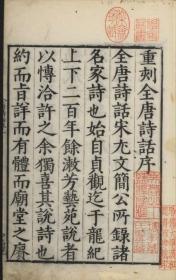 重刻全唐詩話序
全唐詩話宋尤文簡公所錄諸
名家詩也始自貞觀迄于龍紀
上下二百年餘漱芳藝苑說者
以愽洽許之余獨喜其說詩也
約而旨詳而有體而廟堂之賡